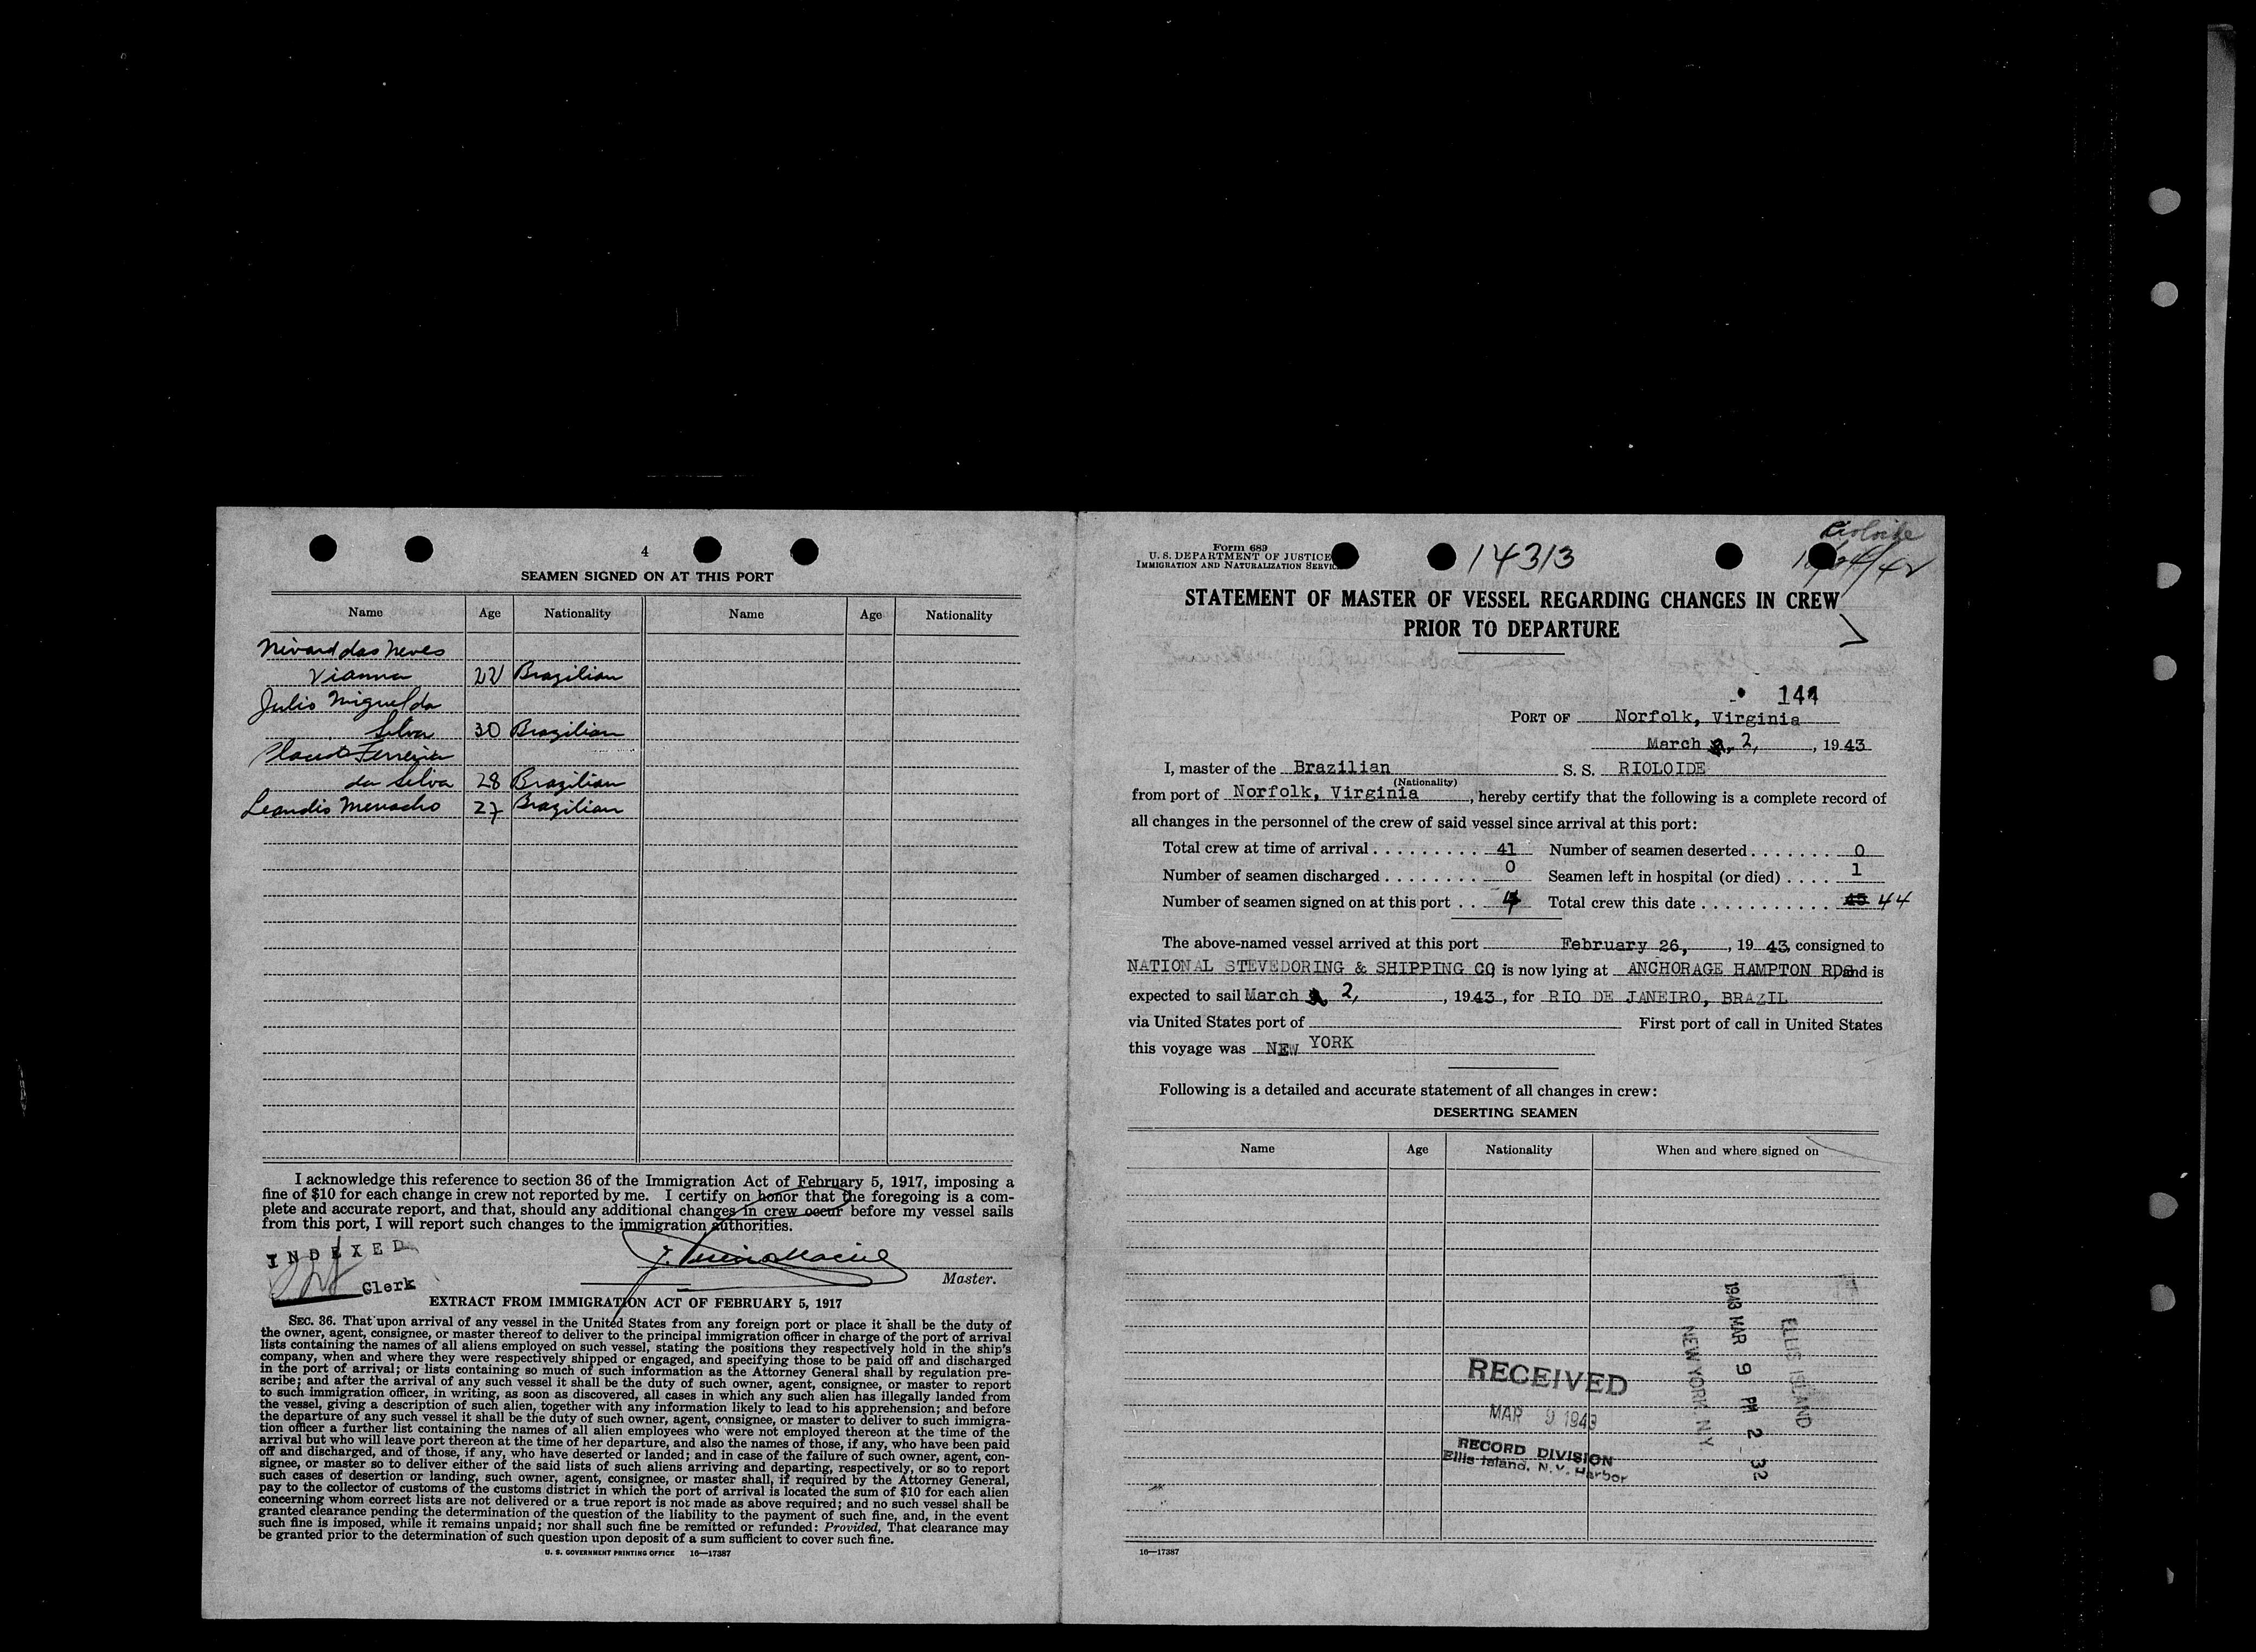 4
SEAMEN SIGNED ON AT THIS PORT
Name Age Nationality Name Age Nationality
Nivard das Neves
Vianna 22 Brazilian
Julio Miguel da
Silva 30 Brazilian
Ferreira
da Silva 28 Brazilian
Menacho 27 Brazilian
I acknowledge this reference to section 36 of the Immigration Act of February 5, 1917, imposing a
fine of $10 for each change in crew not reported by me. I certify on honor that the foregoing is a com-
plete and accurate report, and that, should any additional changes in crew occur before my vessel sails
from this port, I will report such changes to the immigration authorities.
INDEXED
Clerk
Master.
EXTRACT FROM IMMIGRATION ACT OF FEBRUARY 5, 1917
SEC. 36. That upon arrival of any vessel in the United States from any foreign port or place it shall be the duty of
the owner, agent, consignee, or master thereof to deliver to the principal immigration officer in charge of the port of arrival
lists containing the names of all aliens employed on such vessel, stating the positions they respectively hold in the ship's
company, when and where they were respectively shipped or engaged, and specifying those to be paid off and discharged
in the port of arrival; or lists containing so much of such information as the Attorney General shall by regulation pre-
scribe; and after the arrival of any such vessel it shall be the duty of such owner, agent, consignee, or master to report
to such immigration officer, in writing, as soon as discovered, all cases in which any such alien has illegally landed from
the vessel, giving a description of such alien, together with any information likely to lead to his apprehension; and before
the departure of any such vessel it shall be the duty of such owner, agent, consignee, or master to deliver to such immigra-
tion officer a further list containing the names of all alien employees who were not employed thereon at the time of the
arrival but who will leave port thereon at the time of her departure, and also the names of those, if any, who have been paid
off and discharged, and of those, if any, who have deserted or landed; and in case of the failure of such owner, agent, con-
signee, or master so to deliver either of the said lists of such aliens arriving and departing, respectively, or so to report
such cases of desertion or landing, such owner, agent, consignee, or master shall, if required by the Attorney General,
pay to the collector of customs of the customs district in which the port of arrival is located the sum of $10 for each alien
concerning whom correct lists are not delivered or a true report is not made as above required; and no such vessel shall be
granted clearance pending the determination of the question of the liability to the payment of such fine, and, in the event
such fine is imposed, while it remains unpaid; nor shall such fine be remitted or refunded: Provided, That clearance may
be granted prior to the determination of such question upon deposit of a sum sufficient to cover such fine.
U. S. GOVERNMENT PRINTING OFFICE 16—17387
Form 689
U. S. DEPARTMENT OF JUSTICE
IMMIGRATION AND NATURALIZATION SERVICE
14313
Rioloide
STATEMENT OF MASTER OF VESSEL REGARDING CHANGES IN CREW
PRIOR TO DEPARTURE
144
PORT OF Norfolk, Virginia
March 2, , 1943
I, master of the Brazilian S. S. RIOLOIDE
(Nationality)
from port of Norfolk, Virginia , hereby certify that the following is a complete record of
all changes in the personnel of the crew of said vessel since arrival at this port:
Total crew at time of arrival 41 Number of seamen deserted 0
Number of seamen discharged 0 Seamen left in hospital (or died) 1
Number of seamen signed on at this port 4 Total crew this date 44
The above-named vessel arrived at this port February 26, , 1943, consigned to
NATIONAL STEVEDORING & SHIPPING CO, is now lying at ANCHORAGE HAMPTON RDS and is
expected to sail March 2, , 1943, for RIO DE JANEIRO, BRAZIL
via United States port of First port of call in United States
this voyage was NEW YORK
Following is a detailed and accurate statement of all changes in crew:
DESERTING SEAMEN
Name Age Nationality When and where signed on
RECEIVED
MAR 9 1943
RECORD DIVISION
Ellis Island, N. Y. Harbor
NEW YORK NY
1943 MAR 9 PM 2 32
ELLIS ISLAND
16—17387